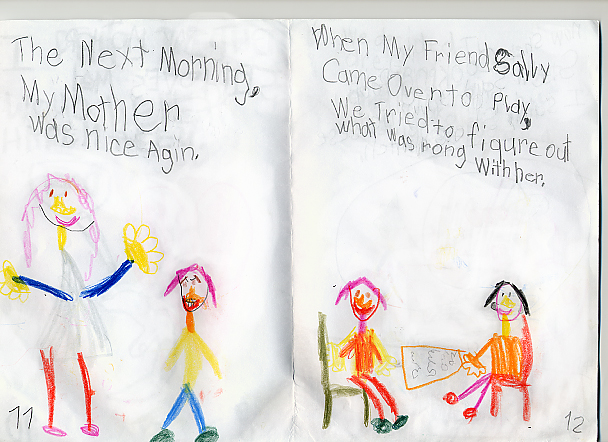 The Next Morning,
My Mother
was nice Agin.
11
When My Friend Sally
Came Over to Play,
We Tried to figure out
what was rong With her.
12